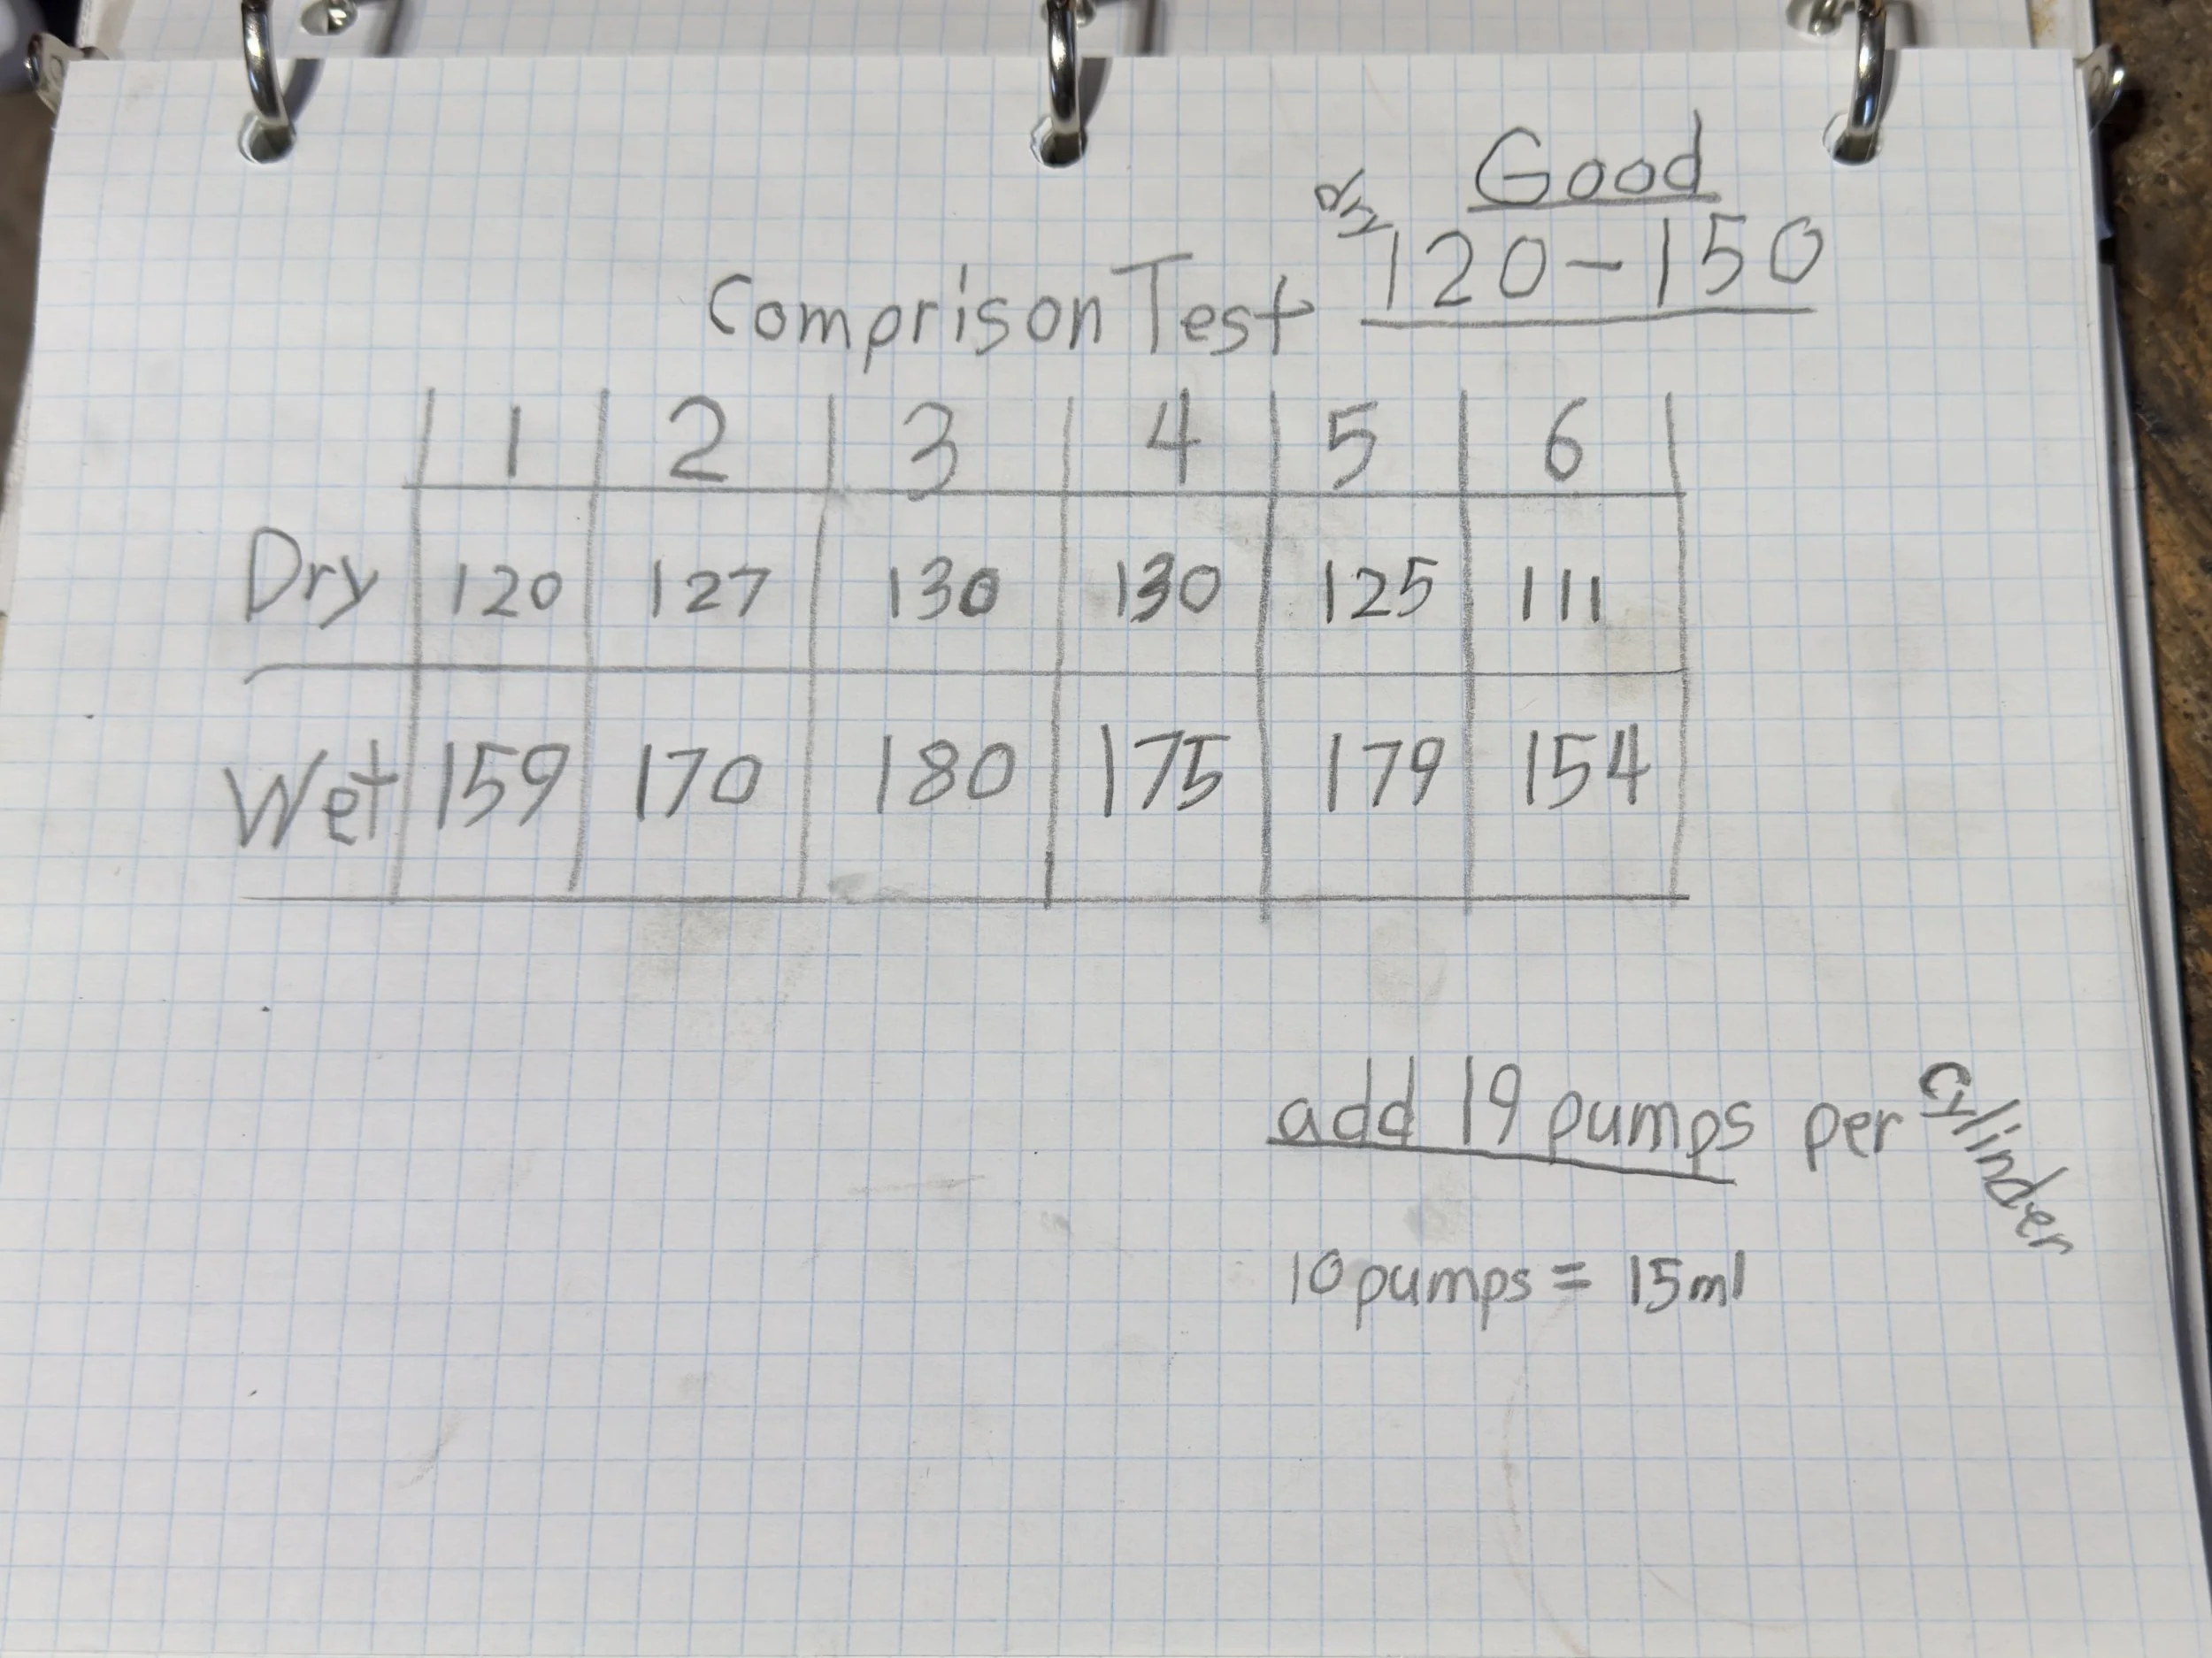 Good
dry 120-150
Comprison Test
1 2 3 4 5 6
Dry 120 127 130 130 125 111
Wet 159 170 180 175 179 154
add 19 pumps per cylinder
10 pumps = 15ml